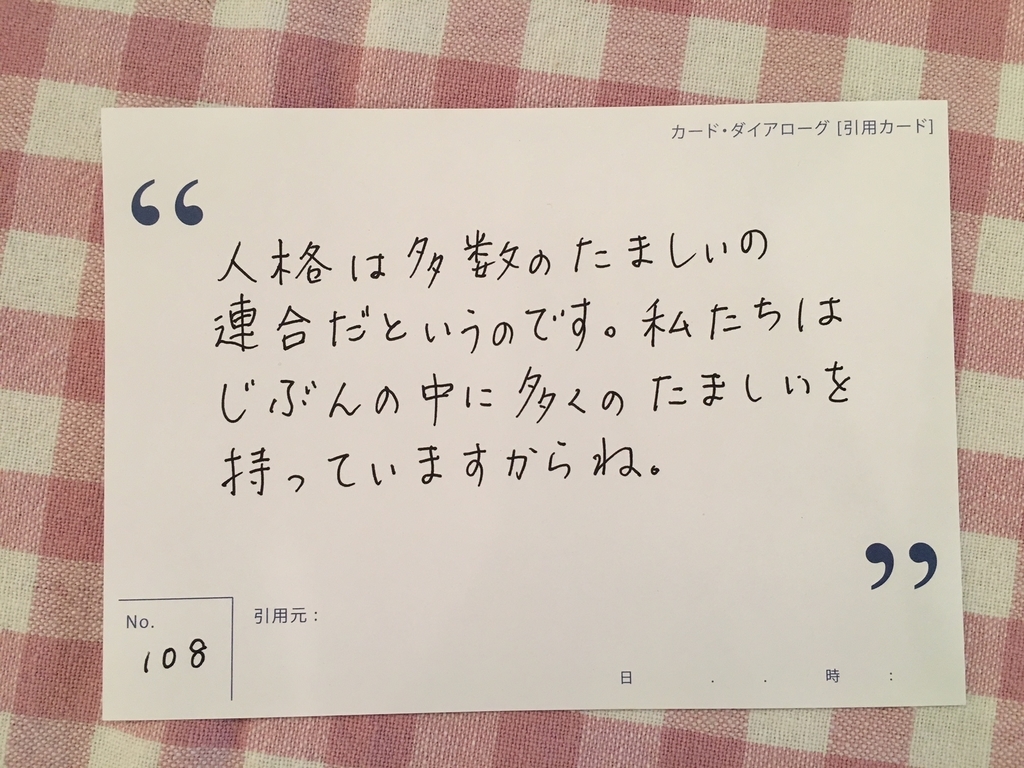 カード・ダイアローグ [引用カード]
“
人格は多数のたましいの
連合だというのです。私たちは
じぶんの中に多くのたましいを
持っていますからね。
”
No.
108
引用元：
日 . . 時 :